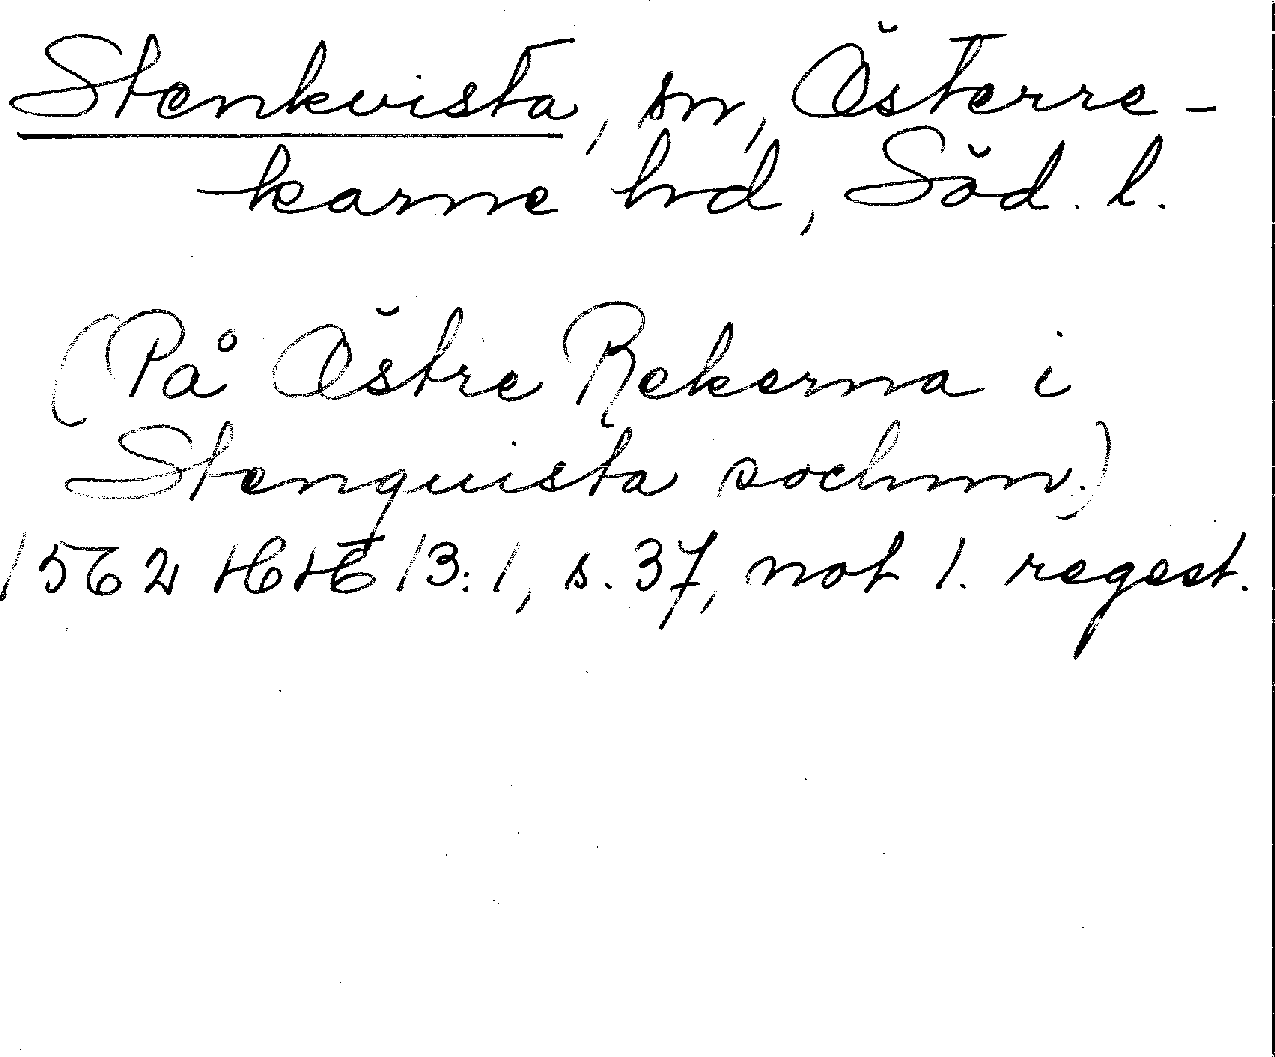 Stenkvista, sn, Österre-
karne hd, Söd. l.
(På Östre Rekerna i
Stenquista sochnn.)
1562 HH 13:1, s. 37, not 1. regest.